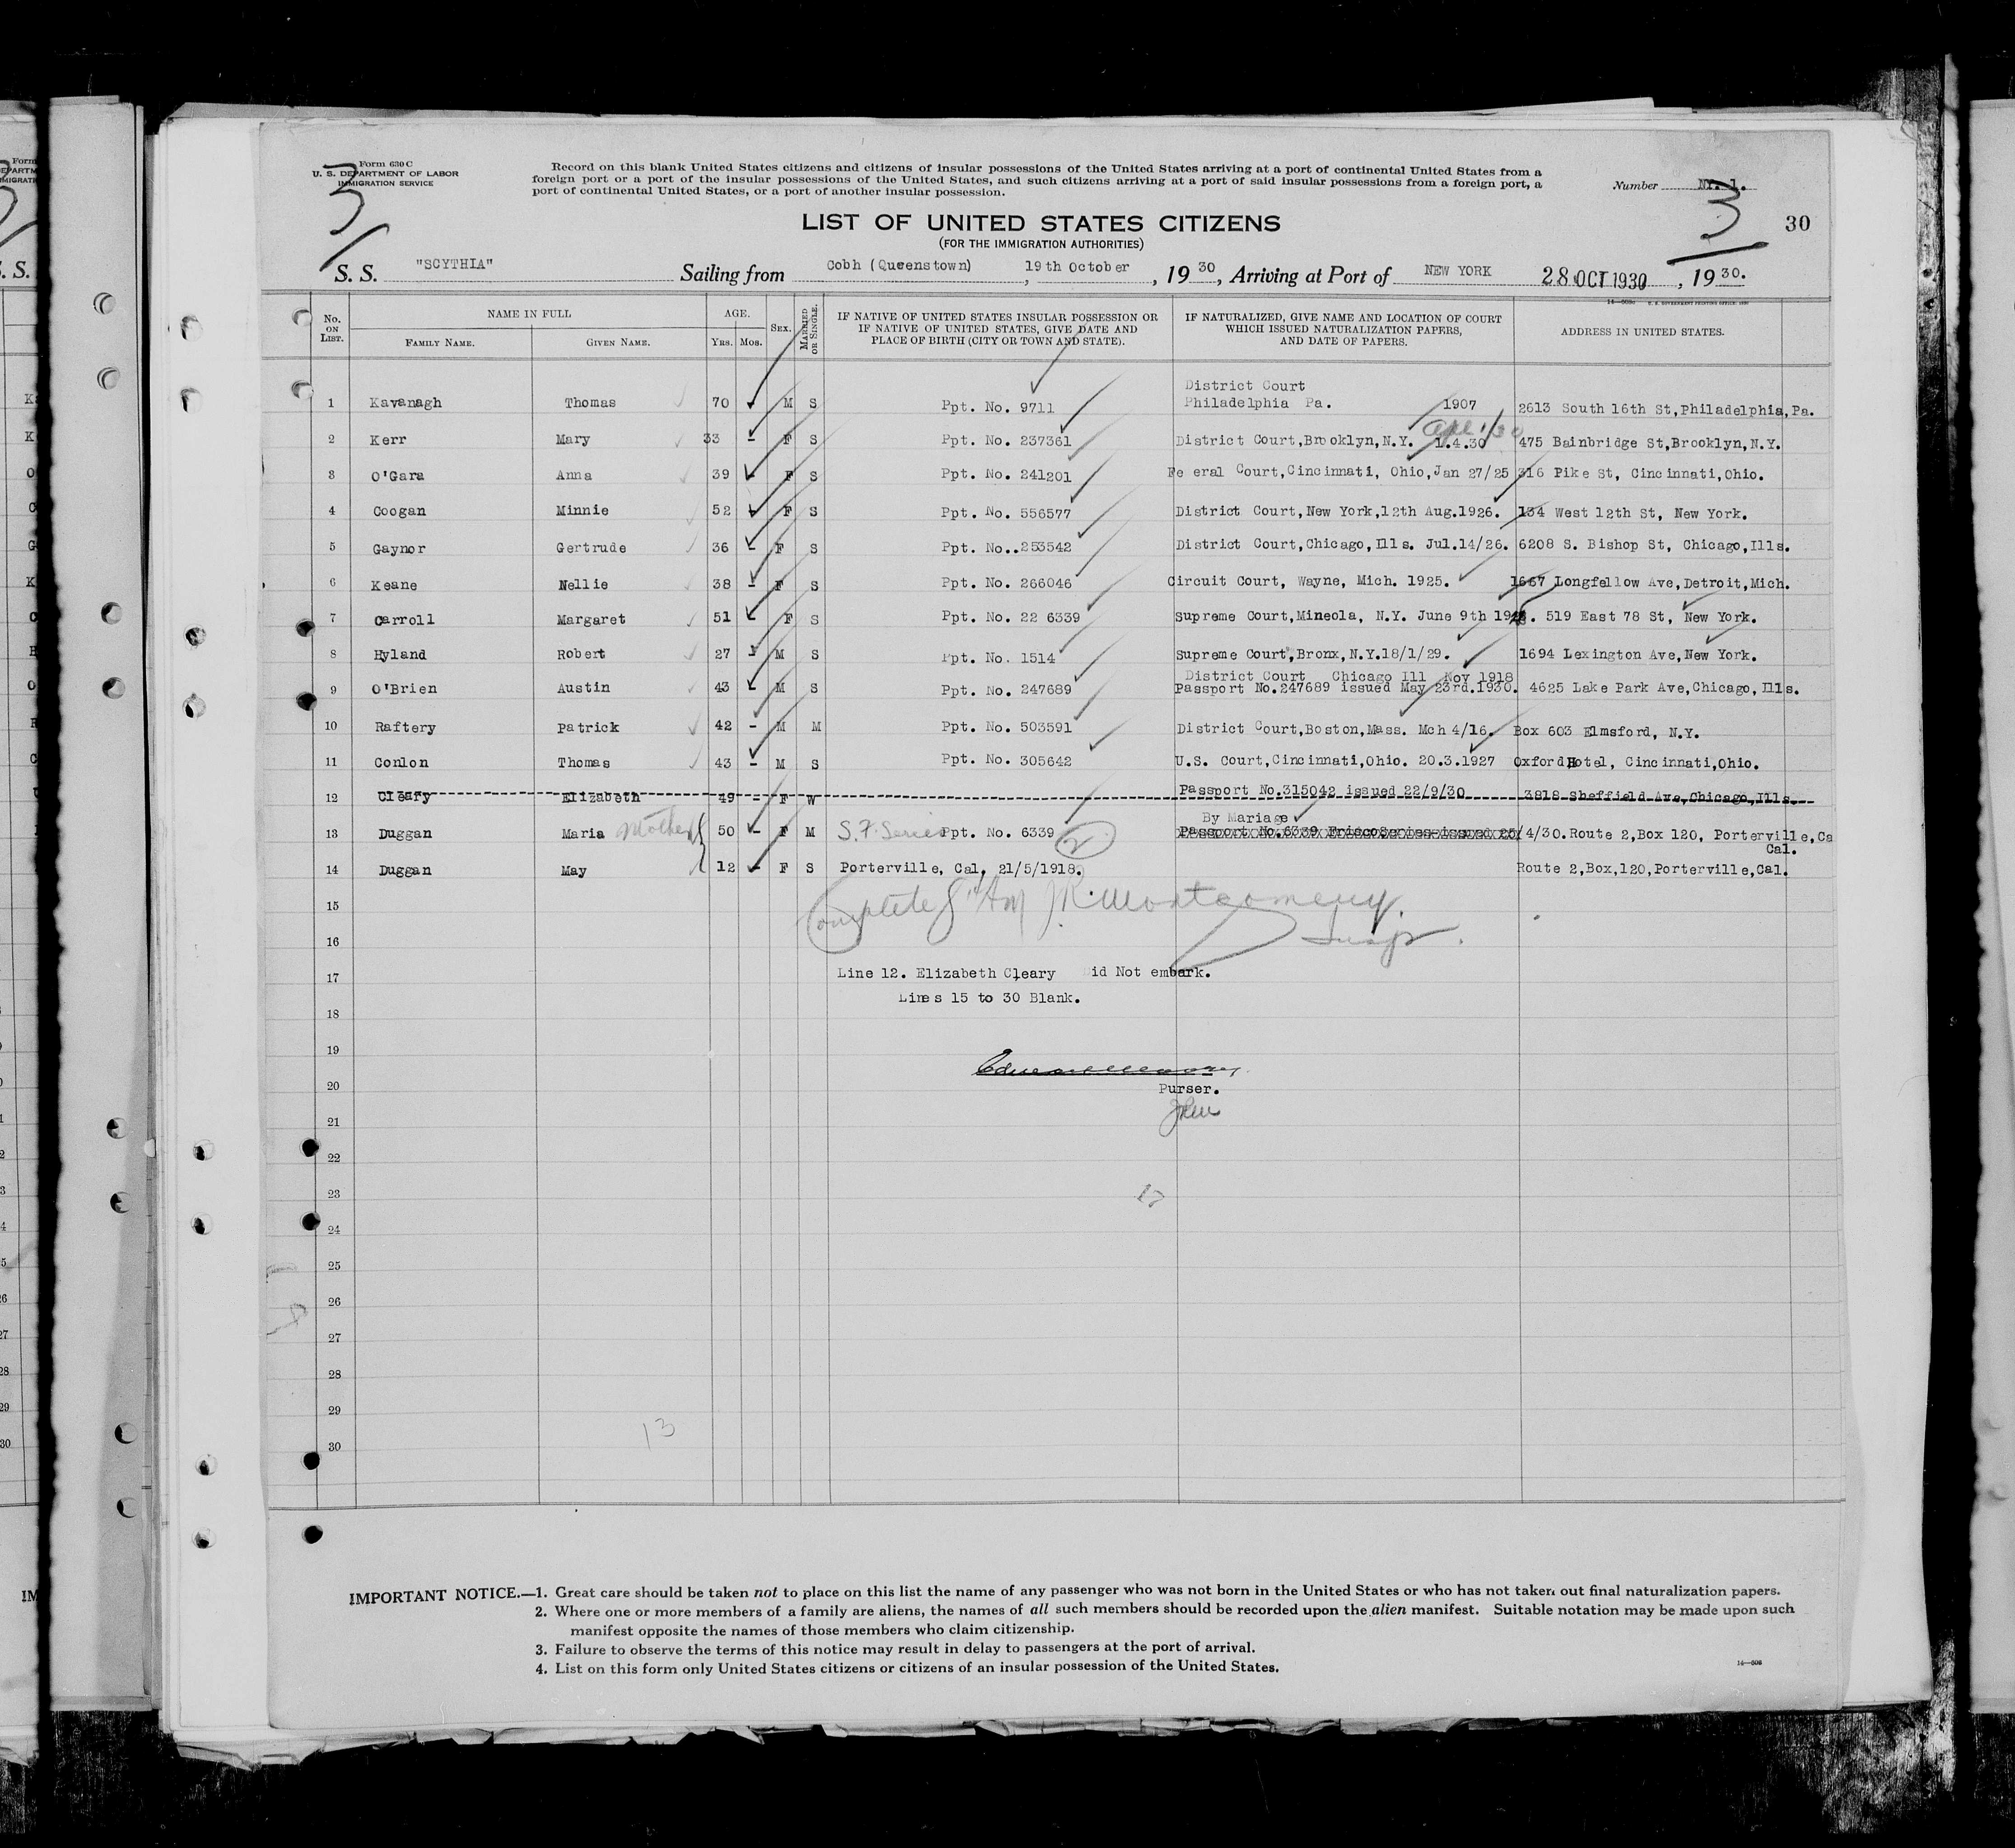 Form 630 C
U. S. DEPARTMENT OF LABOR
IMMIGRATION SERVICE
Record on this blank United States citizens and citizens of insular possessions of the United States arriving at a port of continental United States from a
foreign port or a port of the insular possessions of the United States, and such citizens arriving at a port of said insular possessions from a foreign port, a
port of continental United States, or a port of another insular possession.
Number NY. 1.
3
3
30
LIST OF UNITED STATES CITIZENS
(FOR THE IMMIGRATION AUTHORITIES)
S. S. "SCYTHIA" Sailing from Cobh (Queenstown), 19th October, 19 30, Arriving at Port of NEW YORK 28 OCT 1930, 19 30.
No. ON LIST. NAME IN FULL FAMILY NAME. GIVEN NAME. AGE. YRS. MOS. SEX. MARRIED OR SINGLE. IF NATIVE OF UNITED STATES INSULAR POSSESSION OR IF NATIVE OF UNITED STATES, GIVE DATE AND PLACE OF BIRTH (CITY OR TOWN AND STATE). IF NATURALIZED, GIVE NAME AND LOCATION OF COURT WHICH ISSUED NATURALIZATION PAPERS, AND DATE OF PAPERS. ADDRESS IN UNITED STATES.
1 Kavanagh Thomas 70 - M S Ppt. No. 9711 District Court Philadelphia Pa. 1907 2613 South 16th St,Philadelphia,Pa.
2 Kerr Mary 33 - F S Ppt. No. 237361 District Court,Brooklyn,N.Y. 1.4.30 475 Bainbridge St,Brooklyn,N.Y.
3 O'Gara Anna 39 - F S Ppt. No. 241201 Fe eral Court,Cincinnati, Ohio,Jan 27/25 316 Pike St, Cincinnati,Ohio.
4 Coogan Minnie 52 - F S Ppt. No. 556577 District Court,New York,12th Aug.1926. 134 West 12th St, New York.
5 Gaynor Gertrude 36 - F S Ppt. No..253542 District Court,Chicago,Ills. Jul.14/26. 6208 S. Bishop St, Chicago,Ills.
6 Keane Nellie 38 - F S Ppt. No. 266046 Circuit Court, Wayne, Mich. 1925. 1667 Longfellow Ave,Detroit,Mich.
7 Carroll Margaret 51 - F S Ppt. No. 22 6339 Supreme Court,Mineola, N.Y. June 9th 519 East 78 St, New York.
8 Hyland Robert 27 - M S Ppt. No. 1514 Supreme Court,Bronx,N.Y.18/1/29. 1694 Lexington Ave,New York.
9 O'Brien Austin 43 - M S Ppt. No. 247689 District Court Chicago Ill Nov 1918 Passport No.247689 issued May 23rd.1930. 4625 Lake Park Ave,Chicago,Ills.
10 Raftery Patrick 42 - M M Ppt. No. 503591 District Court,Boston,Mass. Mch 4/16. Box 603 Elmsford, N.Y.
11 Conlon Thomas 43 - M S Ppt. No. 305642 U.S. Court,Cincinnati,Ohio. 20.3.1927 Oxford Hotel, Cincinnati,Ohio.
12 Cleary Elizabeth 49 - F W Passport No.315042 issued 22/9/30 3818 Sheffield Ave,Chicago,Ills.
13 Duggan Maria Mother 50 - F M S.F. Series Ppt. No. 6339 By Mariage Passport No.6339 FriscoSeries issued 25/4/30. Route 2,Box 120, Porterville,Ca
Cal.
14 Duggan May 12 - F S Porterville, Cal, 21/5/1918. Route 2,Box,120,Porterville,Cal.
15
Complete J.R. Montgomery.
16 Insp.
17 Line 12. Elizabeth Cleary id Not embark.
Lines 15 to 30 Blank.
18
19
20 Purser.
21
22
23
24
25
26
27
28
29
13
30
IMPORTANT NOTICE.—1. Great care should be taken not to place on this list the name of any passenger who was not born in the United States or who has not taken out final naturalization papers.
2. Where one or more members of a family are aliens, the names of all such members should be recorded upon the alien manifest. Suitable notation may be made upon such
manifest opposite the names of those members who claim citizenship.
3. Failure to observe the terms of this notice may result in delay to passengers at the port of arrival.
4. List on this form only United States citizens or citizens of an insular possession of the United States.
14—608